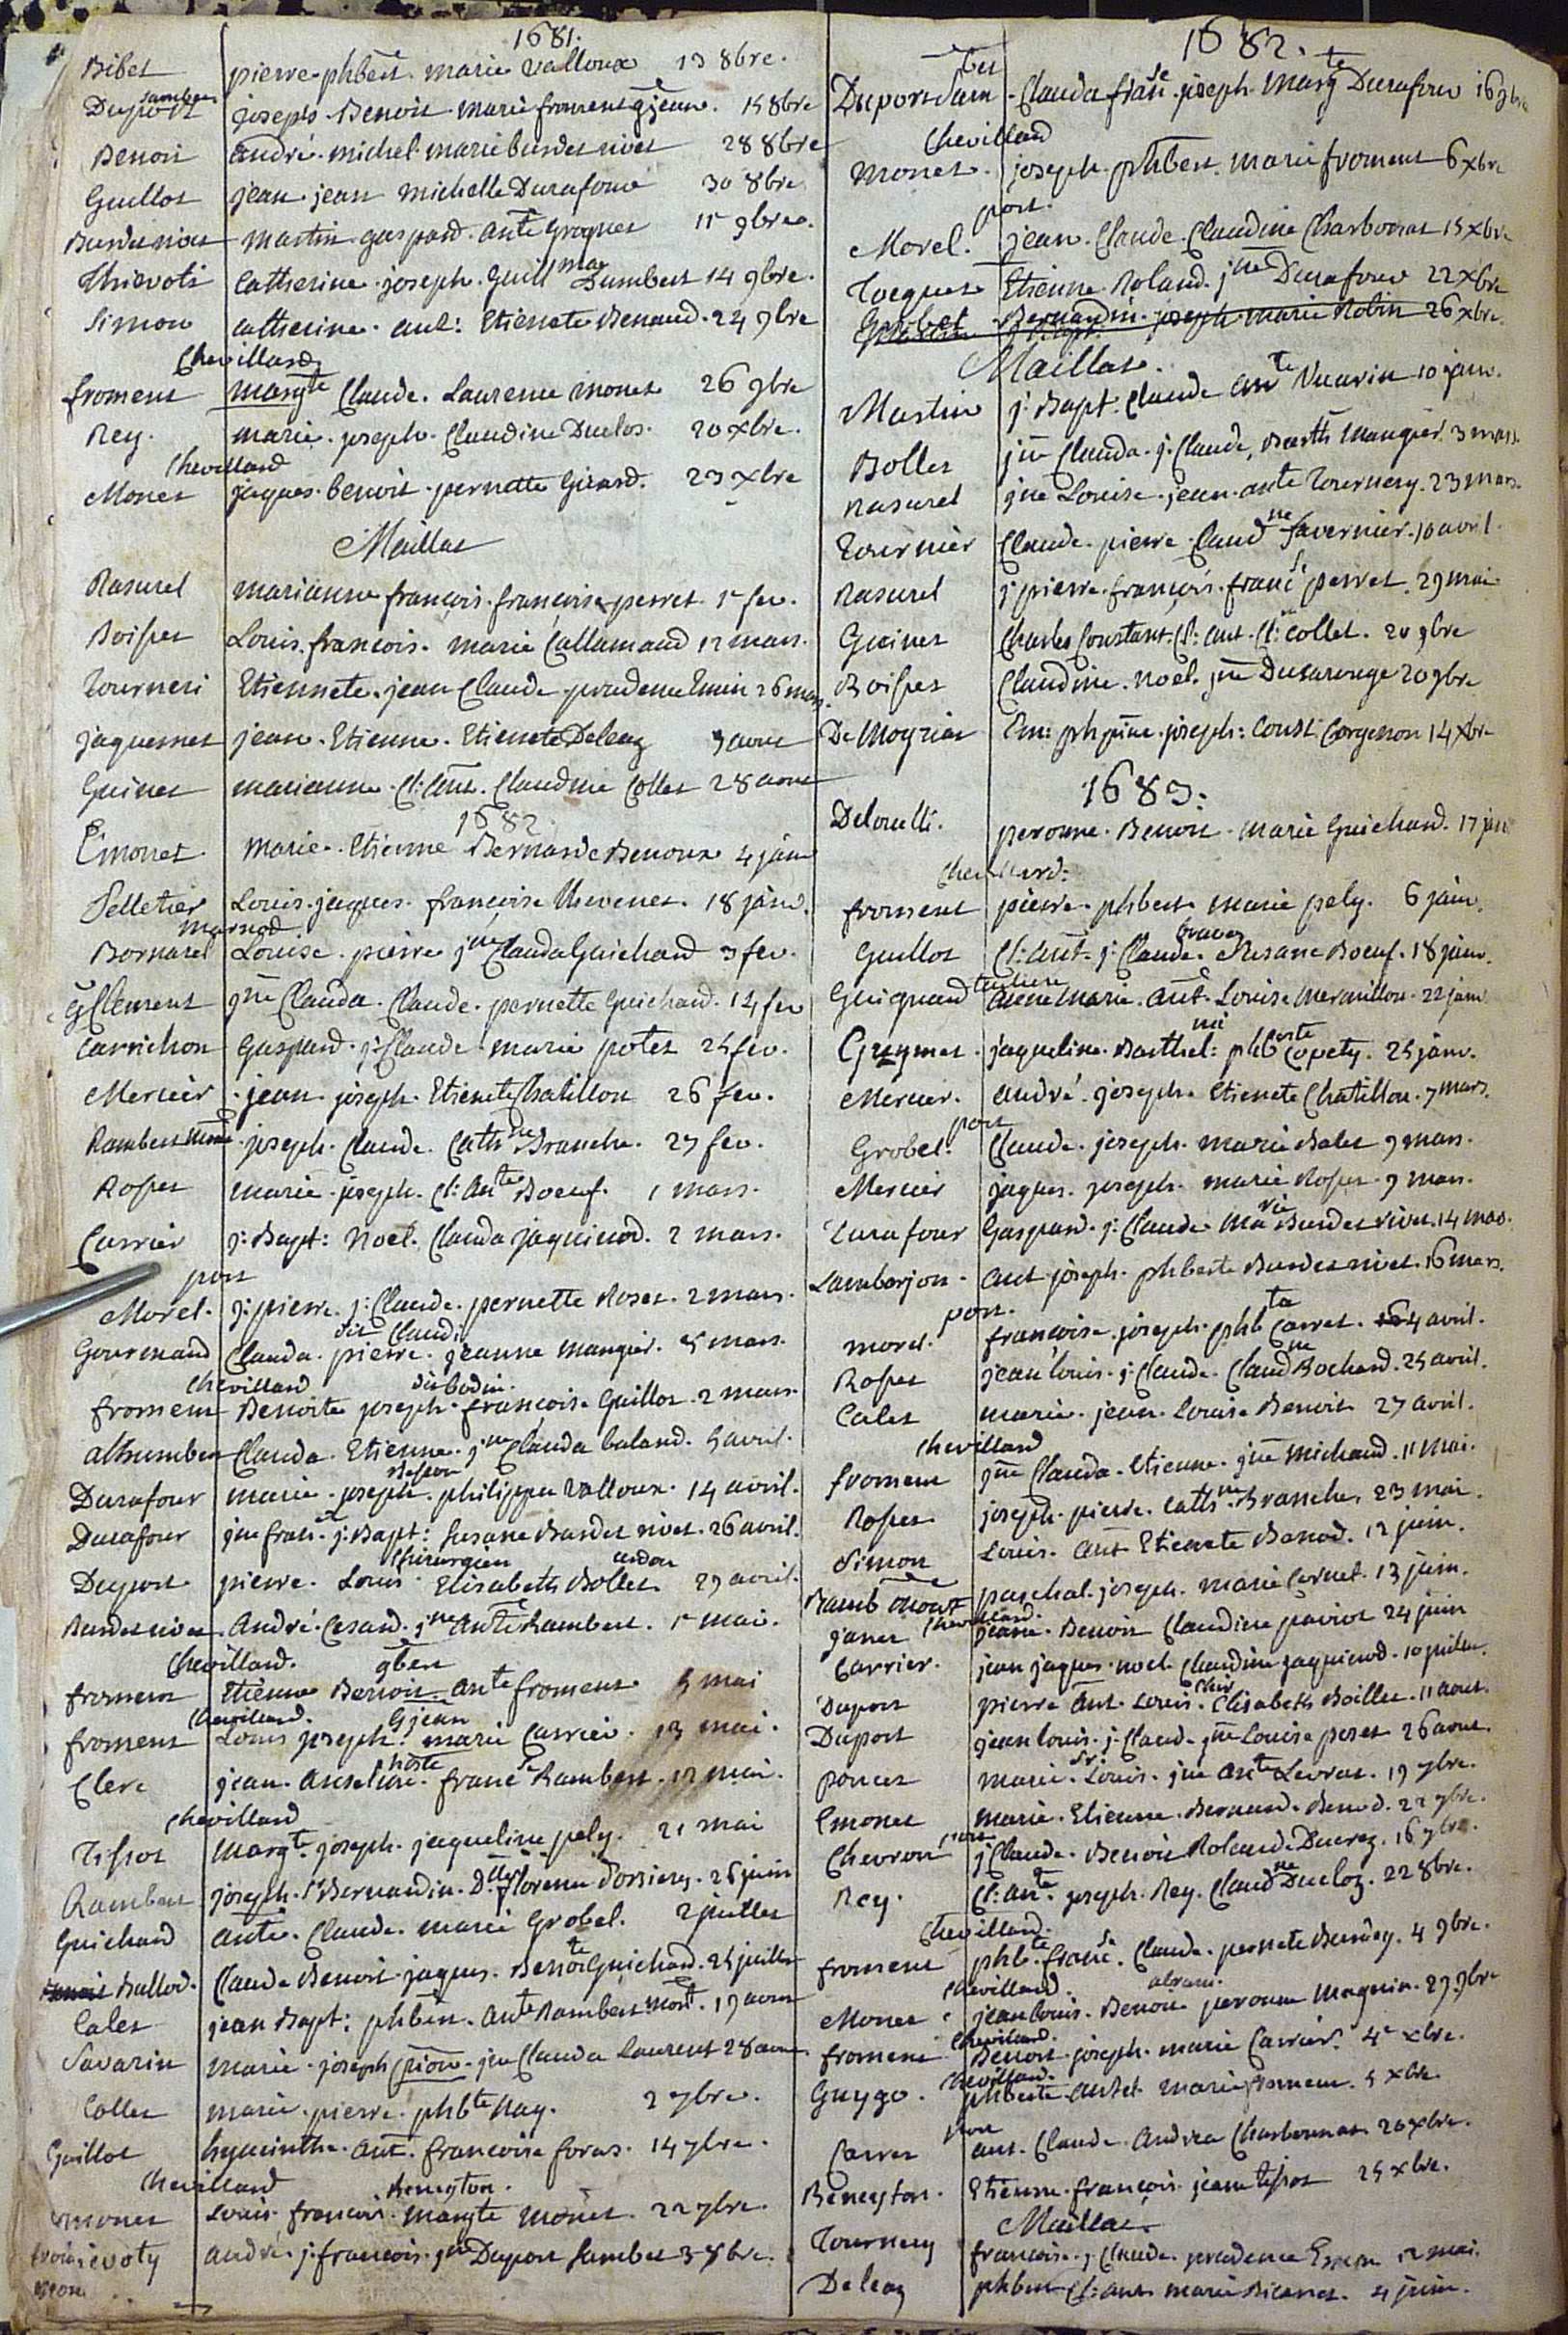 1681.
Bibet pierre phbert. marie Valloux 13 8bre.
Duport Lambert joseph. Benoit. marie froment gjean. 15 8bre
Benoit andré. michel. marie burdet nivet 28 8bre
Guillot jean. jean michelle Durafour 30 8bre
Burdet nivet martin. gaspard. ante grognet 11 9bre.
Thievoti Catherine. joseph. Guill mae Humbert 14 9bre.
Simon catherine. ant: Etienete Benaud. 24 9bre
Chevillard
froment margte Claude. Laurence monet 26 9bre
Rey. marie. joseph. Claudine Duclos. 20 xbre.
Chevillard
Monet jaques. benoit. pernette Girard. 23 xbre
Maillat
Rasurel marianne françois. françoise perret. 1r fev.
Boisset Louis. francois. marie Callamand 12 mars.
Tourneri Etiennete. jean Claude. prudence Emin 26 mars.
jaquemet jean. Etienne. Etienete Deleaz 3 aout
Guinet marianne. Cl: Ant. Claudine Collet 28 aout
1682
Emonet marie. Etienne Bernarde Benoux 4 janv
Pelletier Louis. jaques. francoise thevenet. 18 janv.
marnod
Bornarel Louise. pierre jne Clauda Guichard 3 fev.
g Clement jne Clauda. Claude. pernette Guichard. 14 fev
Carrichon Gaspard. j: Claude. marie potet 25 fev.
Mercier jean. joseph. Etienete Chatillon 26 fev.
Rambert joseph. Claude. Cathne Branche. 27 fev.
Rosset marie. joseph. Cl: Ante Boeuf. 1 mars.
Carrier j: Bapt: Noel. Clauda jaquinod. 2 mars.
port
Morel. j: pierre. j: Claude. pernette Roset. 2 mars.
dit Claudi
Gourmand Clauda. pierre. jeanne mangier. 5 mars.
Chevillard dit bodin.
froment Benoite joseph. françoise Guillot. 2 mars.
althumber Clauda. Etienne. jne Clauda baland. 5 avril.
Durafour marie. joseph. philippa Valloux. 14 avril.
Durafour jne franse. j: Bapt: Susane Burdet nivet. 26 avril.
Chirurgien cerdon
Duport pierre. Louis Elisabeth Bollet. 29 avril.
Burdet nivet André. Cesard. jne Ante Rambert. 1r mai.
Chevillard. gben
froment Etienne Benoit. ante froment 5 mai
Chevillard. Gjean
froment Louis joseph. marie Carrier. 13 mai.
hoste
Clerc jean. Anselme. france Rambert. 17 mai.
Chevillard
Tissot margte. joseph. jaqueline pely. 21 mai
Rambert joseph. Sr Bernardin. Dlle florence Dorsieres. 26 juin
Guichard ante. Claude. marie Grobel. 2 juillet
Ballod. Claude Benoit. jaques. Benoite Guichard. 25 juillet
Calet jean Bapt: phben. ante Rambert mont. 17 aout
Savarin marie. joseph Crion. jne Clauda Laurent 28 aout.
Collet marie. pierre. phbte Nay. 2 7bre.
Guillot hyacinthe. ant. francoise foras. 14 7bre.
Chevillard Beneyton.
Emonet Louis. francois. margte Monet. 22 7bre.
andré. j. francois. jne Duport Humbert 3 8bre.
1682.
Duport dam Clauda franse. joseph. Margte Durafour 16 9bre
Chevillard
Monet. joseph. phbert. marie froment 6 xbre
port.
Morel. jean. Claude. Claudine Charbonat 15 xbre
Tocquet Etienne. Roland. jne Durafour 22 xbre
Grobet Bernardin. joseph. marie Robin 26 xbre.
Maillat.
Martin j: Bapt. Claude ante Vuarin 10 janv.
Bollet jne Clauda. j. Claude, Barth Mangier 3 mars.
Rasurel jne Louise. jean. ante Tournery. 23 mars.
Tournier Claude. pierre. Claudne favernier. 10 avril.
Rasurel j pierre. françois. franse perret. 29 mai
Guinet Charles Constant. Cl: ant. Cl: Collet. 20 9bre
Boisset Claudine. noel. jne Dusarouge 20 9bre
De Moyriat joseph: Const: Corgenon 14 xbre
1683.
Delouelli. peronne. Benoit. marie Guichard. 17 janv
Chevillard:
froment pierre. phbert. marie pely. 6 janv.
Guillot Cl: Ant. j: Claude. Susane Boeuf. 18 janv.
Guignard Anne marie. Ant. Louise Mermillon. 22 janv
Greymet. jaqueline. Barthel: phbte Copety. 25 janv.
Mercier. André. joseph. Etienete Chatillon. 7 mars.
port
Grobel. Claude. joseph. marie Balet 9 mars.
Mercier jaques. joseph. marie Rosset. 9 mars.
Durafour Gaspard. j: Claude. Marie Burdet nivet. 14 mars.
Lamberjon. ant. joseph. phberte Burdet nivet. 16 mars.
port.
morel. françoise. joseph. phbte Carret. 4 avril.
Rosset jean louis. j: Claude. Claudne Rochard. 25 avril.
Calet marie. jean. Louise Benoit 27 avril.
Chevillard
froment jne Clauda. Etienne. jne Michaud. 11 Mai.
Rosset joseph. pierre. cathne Branche. 23 mai.
Simon Louis. ant Etienete Benod. 12 juin.
Ramb mont paschal. joseph. marie Cornet. 13 juin.
Chevillard.
janet jeane. Benoit Claudine paviot 24 juin
Carrier. jean jaques. noel. Claudine jaquinod. 10 juillet.
Duport pierre Ant. Louis. Chir Elisabeth Boillet. 11 aout.
Duport jean louis. j. Claud. jne Louise peset 26 aout.
poncet marie. Louis. jne ante Levrat. 17 7bre.
Emonet marie. Etienne. Bernard. Benod. 22 7bre.
Chevron port j Claude. Benoit Rolande Ducrez. 16 7bre.
Rey. Cl: ante. joseph. Rey. Claudne Ducloz. 22 8bre.
Chevillard.
froment phbte france. Claude. pernete Burdey. 4 9bre.
Chevillard. abram.
Monet jean louis. Benoit peronne Magnin. 29 9bre
Chevillard.
froment Benoit joseph. marie Carrier. 4e xbre.
Chevillard.
Guygo. phberte. antel. marie froment. 5 xbre.
port
Carret ant. Claude. Andrea Charbonnat. 20 xbre.
Beneyton. Etienne. françois. jeane tissot 25 xbre.
Maillat.
Tournery francoise. j. Claude. prudence Emin 12 mai.
Deleaz phbert Cl: ant. marie Bicornet. 4 juin.